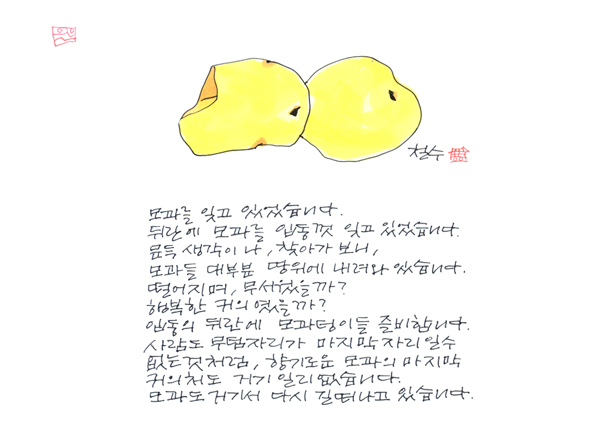 철수
모과를 잊고 있었습니다.
뒤란에 모과를 입동껏 잊고 있었습니다.
문득 생각이 나, 찾아가 보니,
모과들 대부분 땅위에 내려와 있습니다.
떨어지며, 무서웠을까?
행복한 귀의 였을까?
입동의 뒤란에 모과덩이들 즐비합니다.
사람도 무덤자리가 마지막 자리일수
없는것처럼, 향기로운 모과의 마지막
귀의처도 거기 일리 없습니다.
모과도 거기서 다시 길떠나고 있습니다.